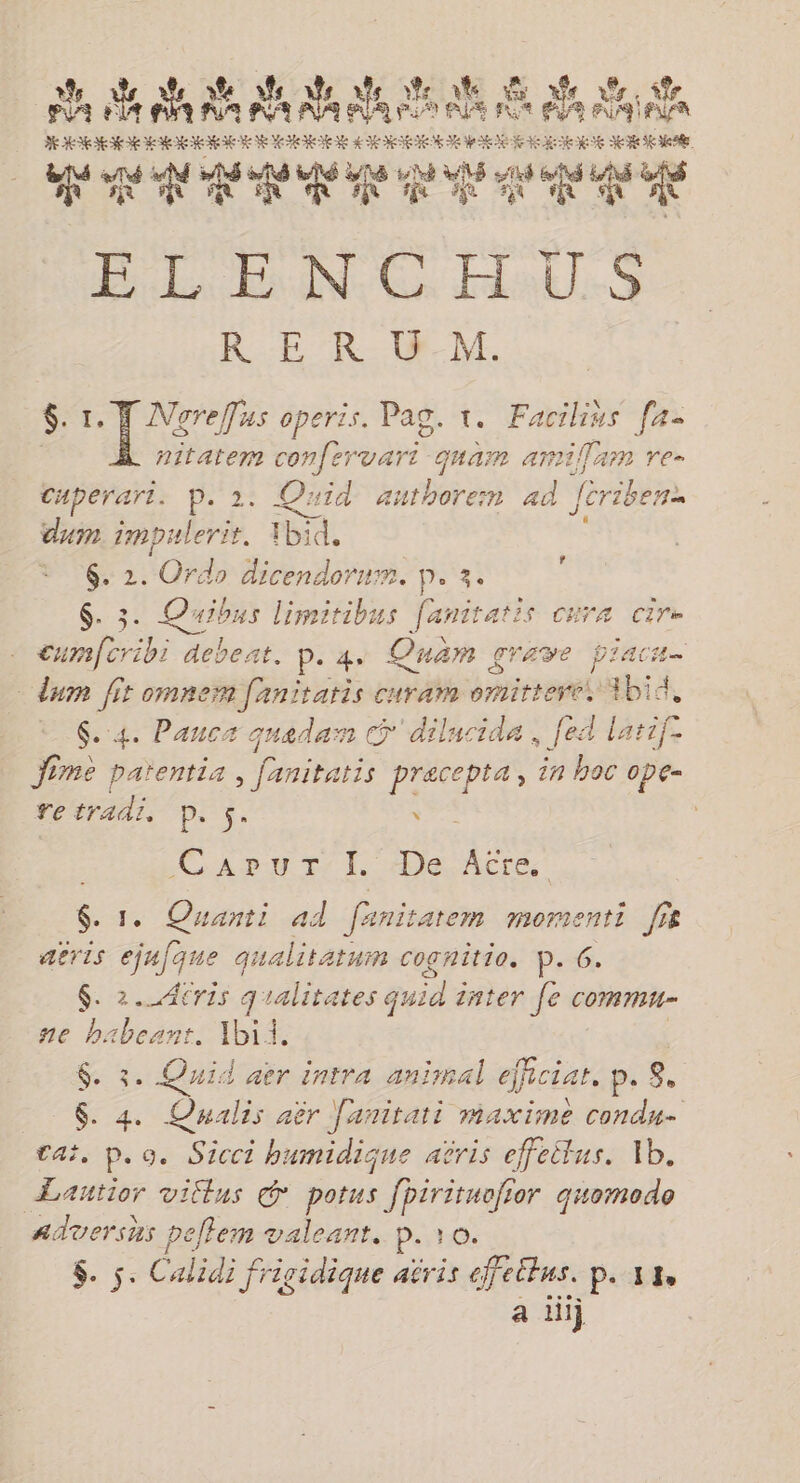 ELENCHUS
RERUM.
§. 1. INgreſſus operis. Pag. 1. Faciliùs ſa-
nitatem conſervari quàm amiſſam re-
cuperari. p. 2. Quid authorem ad ſcriben-
dum impulerit. Ibid.
§. 2. Ordo dicendorum. p. 3.
§. 3. Quibus limitibus ſanitatis cura cir-
cumſcribi debeat. p. 4. Quàm grave piacu-
lum ſit omnem ſanitatis curam omittere. Ibid.
§. 4. Pauca quædam & dilucida, ſed latiſ-
ſimè patentia, ſanitatis præcepta, in hoc ope-
re tradi. p. 5.
CAPUT I. De Aëre.
§. 1. Quanti ad ſanitatem momenti ſit
aëris ejuſque qualitatum cognitio. p. 6.
§. 2. Aëris qualitates quid inter ſe commu-
ne habeant. Ibid.
§. 3. Quid aër intra animal efficiat. p. 8.
§. 4. Qualis aër ſanitati maximè condu-
cat. p. 9. Sicci humidique aëris effectus. Ib.
Lautior victus & potus ſpirituoſior quomodo
adversùs peſtem valeant. p. 10.
§. 5. Calidi frigidique aëris effectus. p. 11.
a iiij